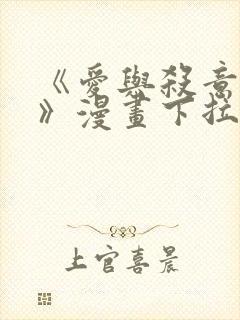 《愛與殺意
》漫畫下拉
上官喜晨